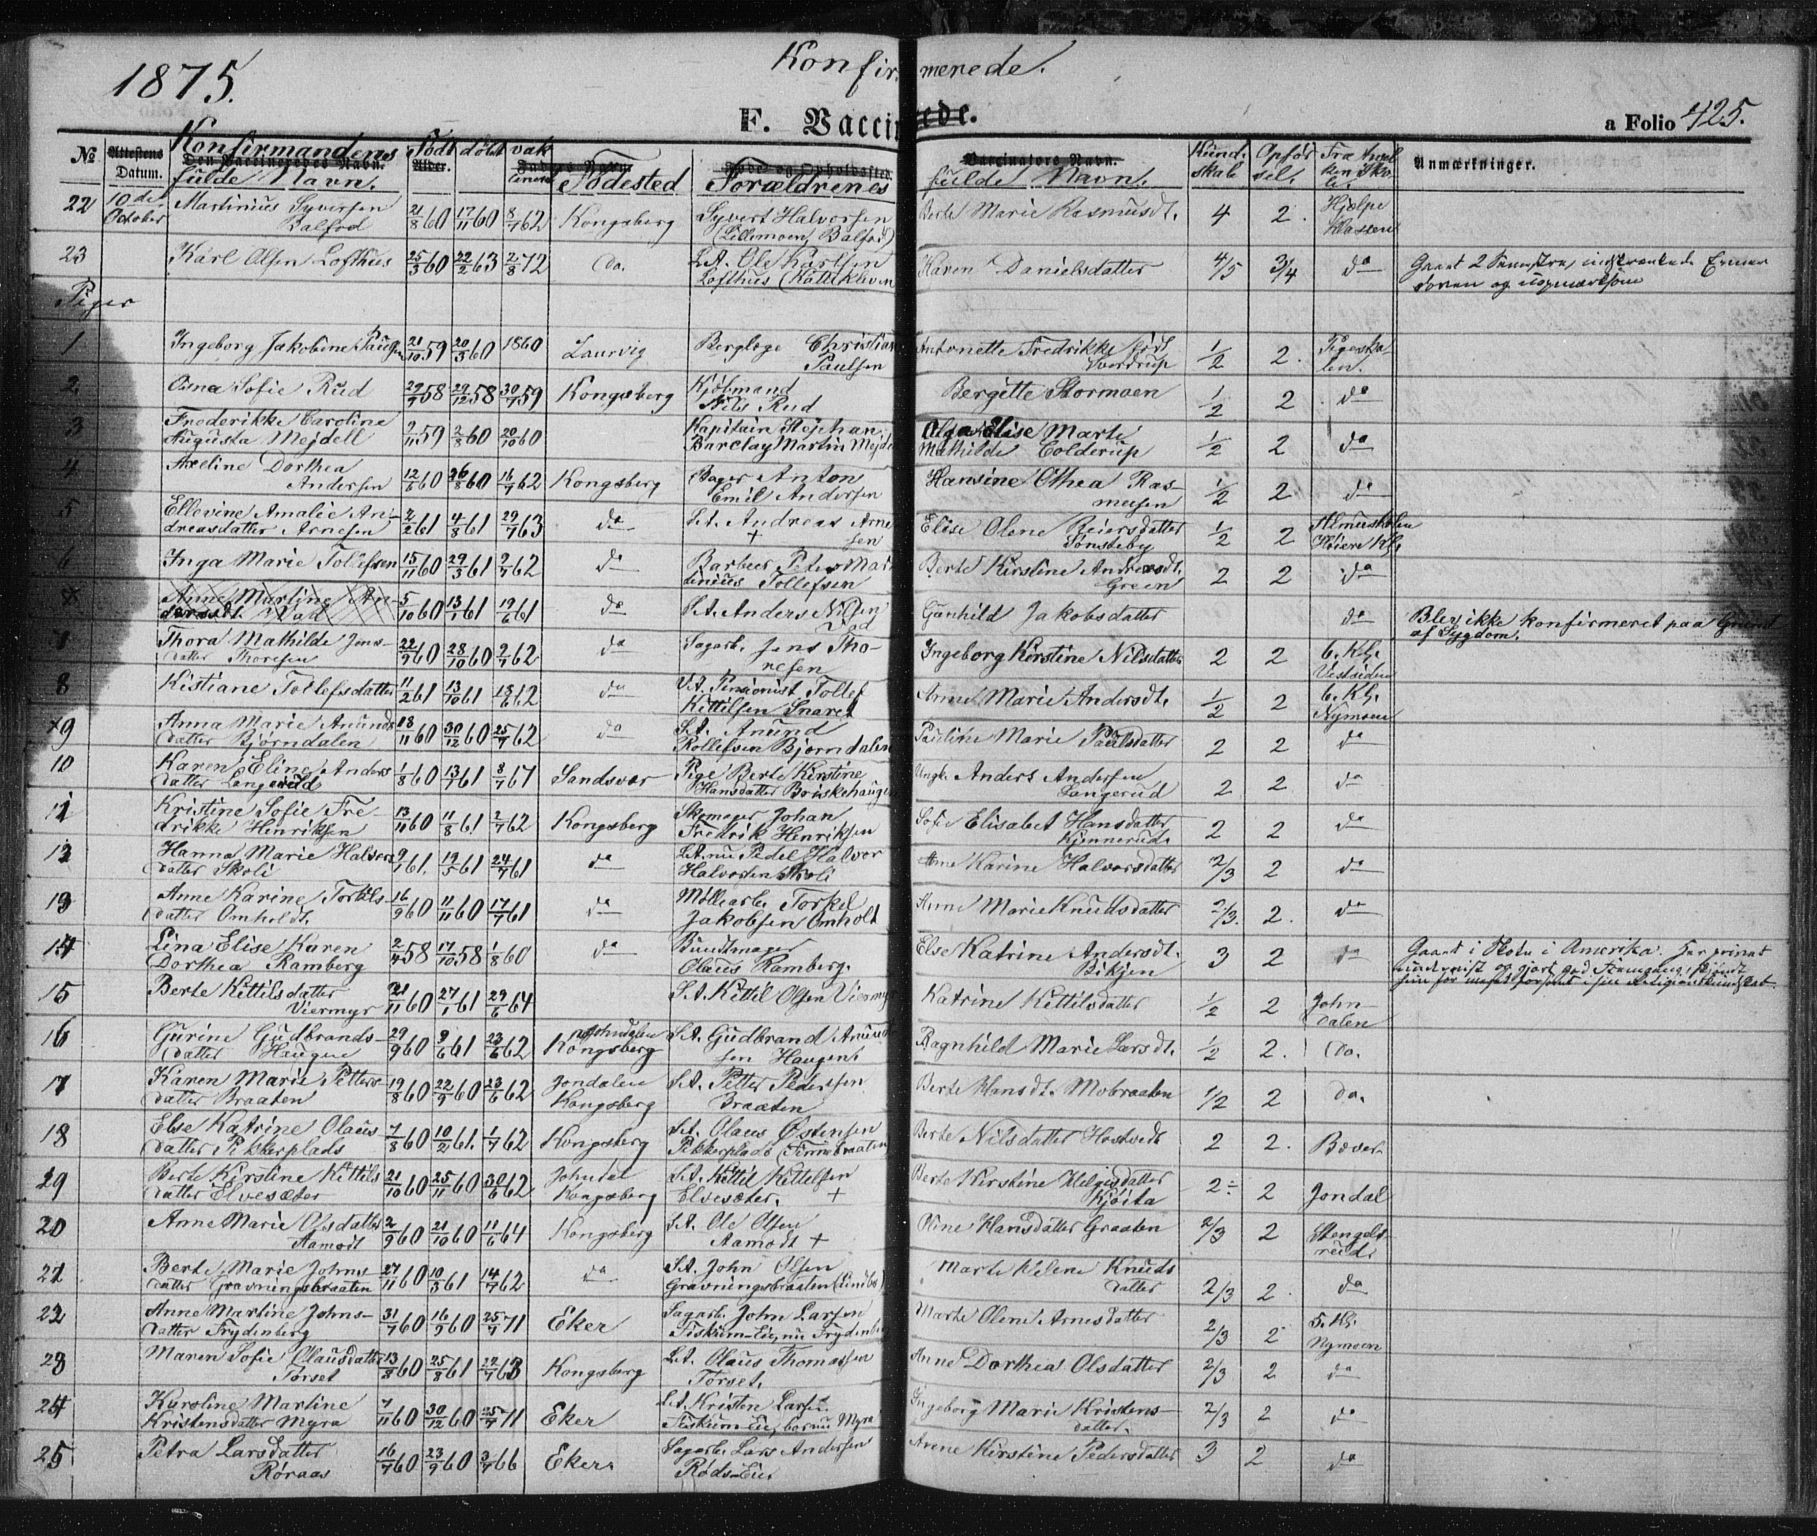 1875.
Konfirmerede.
F. Vaccinerede.
a Folio 425.
№ Attestens Datum. Konfirmandens fulde Navn. Født døbt vakcineret Fødested Forældrenes fulde Navn. Kundskab Opførsel. Fra hvilken Skole. Anmærkninger.
22 10de October Martinius Syvertsen 21/8 60 17/11 60 8/7 62 Kongsberg Syvert Halvorsen Berte Marie Rasmusdt. 4 2. Hjælpe
Balfod (Lillemoen, Balfod) Klassen
23 Karl Olsen Lofthus 25/3 60 22/2 63 2/8 72 Do. S.A. Ole Karlsen Karen Danielsdatter 4/5 3/4 do Gaaet 2
Lofthus (Kattekleven og uopmærksom
Piger
1 Ingeborg Jakobine Paulsen 21/10 59 20/5 60 1860 Laurvig Berglege Christian Antonette Fredrikke født 1/2 2. Pigesko-
Paulsen Sverdrup len.
2 Sofie Rud 29/9 58 29/12 58 30/7 59 Kongsberg Kjøbmand Bergitte Stormoen 1/2 2 do
Nils Rud
3 Frederikke Caroline 2/11 59 2/8 60 20/10 60 Kapitain Olga Elise Marte 1/2 2 do
Augusta Mejdell Barclay Martin Mejdell Mathilde Colderup
4 Axeline Dorthea 12/6 60 26/8 60 16/7 62 Kongsberg Bager Anton Hansine Othea Ras- 1/2 2. do
Andersen Emil Andersen mussen
5 Ellevine Amalie An- 2/2 61 4/8 61 29/7 63 do S.A. Andreas Arne Elise Olene Reiersdatter 1/2 2 Almueskolen
dreasdatter Arnesen + sen Tønsteby Høiere Kl.
6 Inga Marie Tollefsen 15/11 60 29/3 61 2/7 62 do Barbeer Peter Mar Berte Kirstine Andersdt. 2 2 do
tinius Tollefsen Green
Anne Martine An- 5/10 60 13/1 61 19/6 61 do S.A. Anders Nilsen Gunhild Jakobsdatter do Blev ikke konfirmeret paa Grund
dersdt. Vad Vad af Sygdom.
7 Thora Mathilde Jens- 22/9 60 28/10 60 2/7 62 do Sagarb. Jens Tho- Ingeborg Kirstine Nilsdatter 2 2 6. Kl.
datter Thoresen resen Vestsiden
8 Kistiane Tollefsdatter 11/2 61 13/10 61 18/6 62 do Pensionist Tollef Anne Marie Andersdt. 1/2 2 6. Kl.
Kittilsen Snaret Nymoen
9 Anna Marie Anunds 18/11 60 30/12 60 25/7 62 do S.A. Anund Pauline Marie Paulsdatter 2 2 do
datter Bjørndalen Rollefsen Bjørndalen
10 Karen Eline Anders 1/8 60 13/7 61 8/7 67 Sandsvær Pige Berte Kirstine Ungk. Anders Andersen 2 2 do
datter Langerud Hansdatter Briskehaugen Langerud
11 Kristine Sofie Fre- 13/10 60 11/8 61 2/7 62 Kongsberg Skomager Johan Sofie Elisabet Hansdatter 2 2 do
drikke Henriksen Fredrik Henriksen Kjennerud.
12 Hanna Marie Halvors 9/1 61. 19/5 61 24/7 61 do S.A. nu Pedel Halvor Anne Karine Halvorsdatter 2/3 2 do
datter Skoli Halvorsen Skoli
13 Anne Karine Torkils- 16/9 60 11/11 60 17/7 61 do Møllearb. Torkel Anne Marie Knudsdatter 2/3. 2. do
datter Omholdt. Jakobsen Omholt
14 Lina Elise Karen 2/4 58 17/10 58 1/8 60 do Buntmager Else Katrine Andersdt. 3 2 do Gaaet i Skole i Amerika. Har privat
Dorthea Ramberg Olaus Ramberg. Bikjen underviist og gjort god Fremgang, skjøndt
15 Berte Kittilsdatter 21/11 60 27/1 61 29/6 64 S.A. Kittil Olsen Viermyr Katrine Kittilsdatter 1/2 2 John-
Viermyr dalen
16 Gurine Gudbrands- 29/9 60 9/6 61 23/6 62 Johndalen S.A. Gudbrand Anund Ragnhild Marie Larsdt. 1/2 2. Do.
datter Haugen Kongsberg sen Haugen
17 Karen Marie Petters 19/8 60 22/9 60 23/6 62 Jondalen S.A. Petter Pedersen Berte Hansdt. Mobraaten 1/2 2 Do.
datter Braaten Kongsberg Braaten
18 Else Katrine Olaus 7/8 60 10/2 61. 1/7 62 Kongsberg S.A. Olaus Østensen Berte Nilsdatter Hostvedt 2 2. Bæver
datter Pikkerplads Pikkerplads (Finnebraaten)
19 Berte Kirstine Kittils 21/10 60 25/11 60 30/6 62 Johndal S.A. Kittil Kittelsen Berte Kirstine Helgesdatter 2÷ 2 Jondal
datter Elvesæter Kongsberg Elvesæter. + Kjøita
20 Anne Marie Olsdatter 2/9 60 21/10 60 11/6 64 Kongsberg S.A. Ole Olsen Oline Hansdatter Graaten 2/3 2 Stengels-
Aamodt Aamodt + rud.
21 Berte Marie Johns 27/11 60 10/3 61 14/7 62 do S.A. John Olsen Marte Helene Knuds 2/3 2. do
datter Gravningsbraaten Gravningsbraaten (Lindbo) datter
22 Anne Martine Johns- 31/7 60 16/9 60 25/7 71 Eker Sagarb. John Larsen Marte Olene Arnesdatter 2/3 2 5. Kl.
datter Frydenberg Fiskum-Eie, nu Frydenberg Nymoen
23 Maren Sofie Olausdatter 13/8 60 25/8 61 22/7 63 Kongsberg S.A. Olaus Thomassen Anne Dorthea Olsdatter 2/3 2 do
Torset Torset.
24 Karoline Martine 7/11 60 30/12 60 25/7 71 Eker S.A. Kristen Larsen Ingeborg Marie Kristens- 2/3 2 do
Kristensdatter Myra Fiskum Eie, bor nu Myra datter.
25 Petra Larsdatter 16/7 60 23/9 60 3/7 66 Eker Sagarb. Lars Andersen Anne Kirstine Pedersdatter 3 2 do
Røraas Røds-Eie